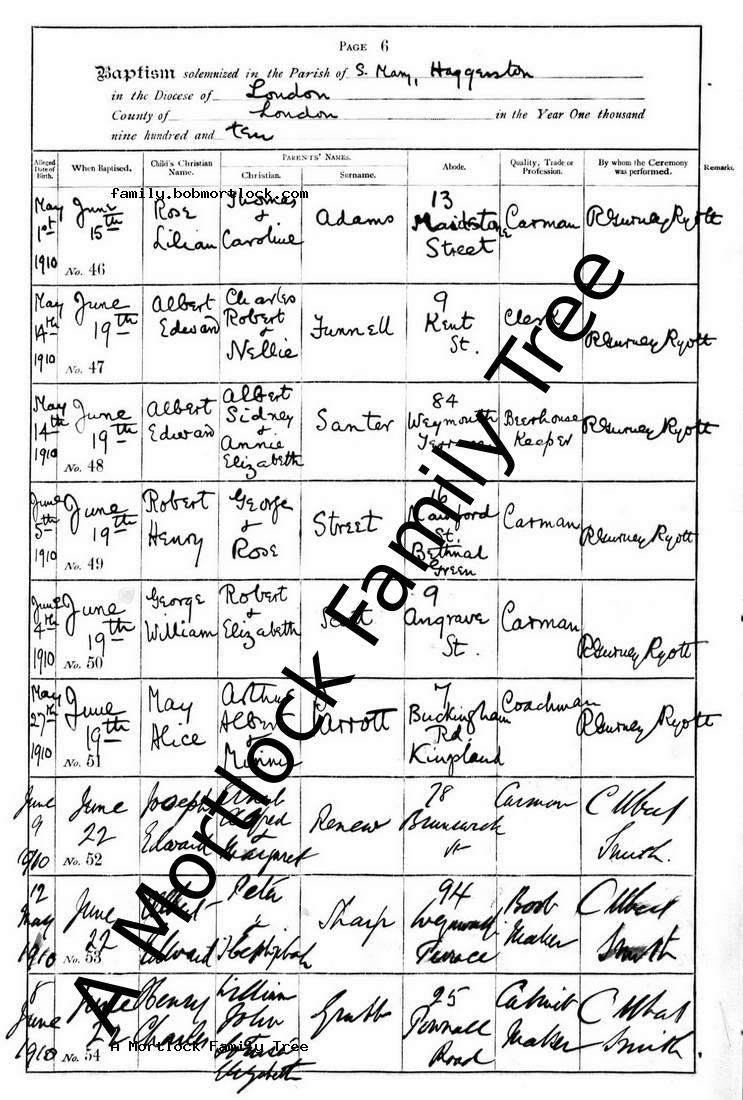 PAGE 6
Baptism solemnized in the Parish of S. Mary, Haggerston
in the Diocese of London
County of London in the Year One thousand
nine hundred and ten
Alleged Date of Birth. When Baptised. Child's Christian Name. PARENTS' NAMES. Christian. Surname. Abode. Quality, Trade or Profession. By whom the Ceremony was performed. Remarks.
family.bobmortlock.com
May 1st 1910 June 15th No. 46 Rose Lilian Thomas & Caroline Adams 13 Maidstone Street Carman R Gurney Ryott
May 14th 1910 June 19th No. 47 Albert Edward Charles Robert & Nellie Funnell 9 Kent St. Clerk R Gurney Ryott
May 14th 1910 June 19th No. 48 Albert Edward Albert Sidney & Annie Elizabeth Santer 84 Weymouth Terrace Beerhouse Keeper R Gurney Ryott
June 5th 1910 June 19th No. 49 Robert Henry George & Rose Street St. Bethnal Green Carman R Gurney Ryott
June 4th 1910 June 19th No. 50 George William Robert & Elizabeth Scott 9 Angrave St. Carman R Gurney Ryott
May 27th 1910 June 19th No. 51 May Alice Arthur Albert & Minnie Parrott 7 Buckingham Rd Kingsland Coachman R Gurney Ryott
June 9 1910 June 22 No. 52 Joseph Edward Ernest & Margaret Renew 78 Brunswick St Carman C Albert Smith.
12 May 1910 June 22 No. 53 Edward Peter & Hephzibah Sharp 94 Weymouth Terrace Boot Maker C Albert Smith
8 June 1910 June 22 No. 54 Henry Charles William John Elizabeth Grubb 25 Pownall Road Cabinet Maker C Albert Smith
A Mortlock Family Tree
A Mortlock Family Tree